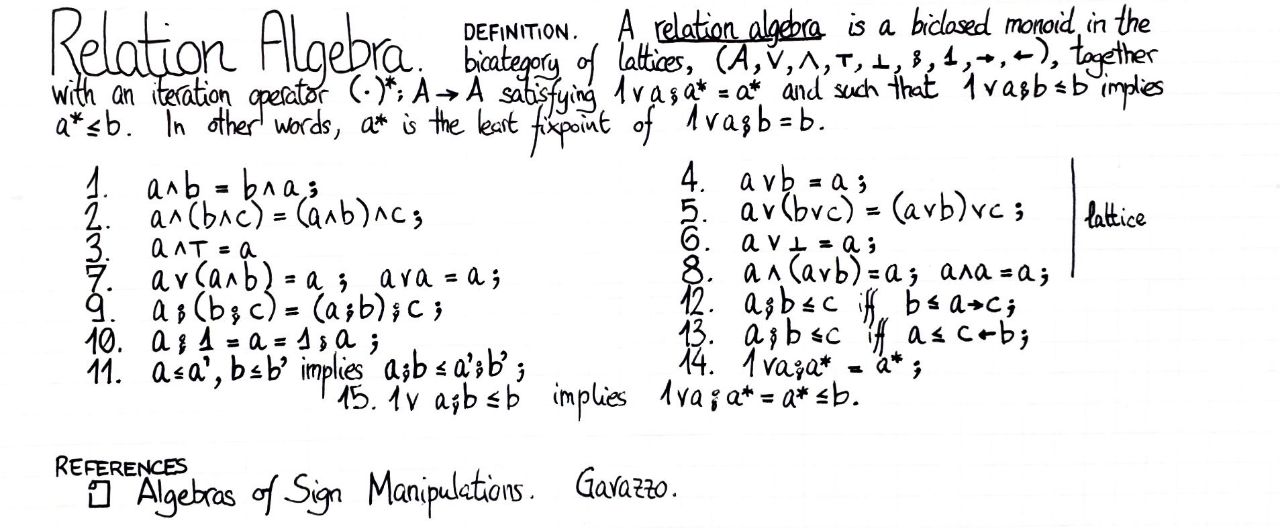 Relation Algebra. DEFINITION. A relation algebra is a biclosed monoid in the
bicategory of lattices, (A, ∨, ∧, ⊤, ⊥, ⨟, 1, →, ←), together
with an iteration operator (·)*: A → A satisfying 1 ∨ a⨟a* = a* and such that 1 ∨ a⨟b ≤ b implies
a* ≤ b. In other words, a* is the least fixpoint of 1 ∨ a⨟b = b.
1. a∧b = b∧a;
2. a∧(b∧c) = (a∧b)∧c;
3. a∧⊤ = a
7. a∨(a∧b) = a; a∨a = a;
9. a⨟(b⨟c) = (a⨟b)⨟c;
10. a⨟1 = a = 1⨟a;
11. a≤a', b≤b' implies a⨟b ≤ a'⨟b';
4. a∨b = a;
5. a∨(b∨c) = (a∨b)∨c;
6. a∨⊥ = a;
8. a∧(a∨b) = a; a∧a = a;
lattice
12. a⨟b ≤ c iff b ≤ a→c;
13. a⨟b ≤ c iff a ≤ c←b;
14. 1∨a⨟a* = a*;
15. 1∨ a⨟b ≤ b implies 1∨a⨟a* = a* ≤ b.
REFERENCES
Algebras of Sign Manipulations. Gavazzo.